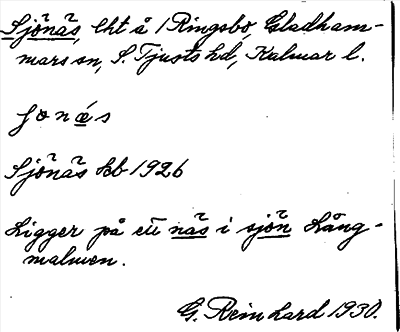 Sjönäs, lht å 1 Ringsbo, Gladham-
mars sn, S. Tjusts hd, Kalmar l.
Sjönäs kb 1926
Ligger på ett näs i sjön Lång-
malmen.
G. Reinhard 1930.